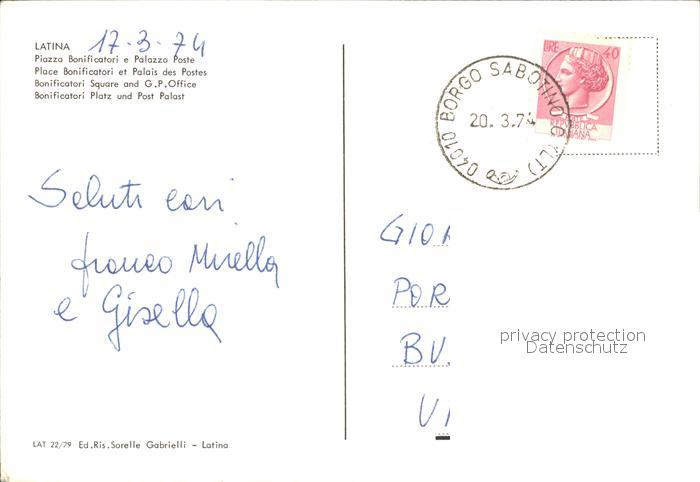 LATINA
17-3-74
Piazza Bonificatori e Palazzo Poste
Place Bonificatori et Palais des Postes
Bonificatori Square and G.P.Office
Bonificatori Platz und Post Palast
LIRE 40
04010 BORGO SABOTINO (LT)
20.3.74
REPUBBLICA
ITALIANA
Saluti cari
franco Mirella
e Gisella
GIO
POR
BV.
VI
privacy protection
Datenschutz
LAT 22/79 Ed.Ris.Sorelle Gabrielli - Latina